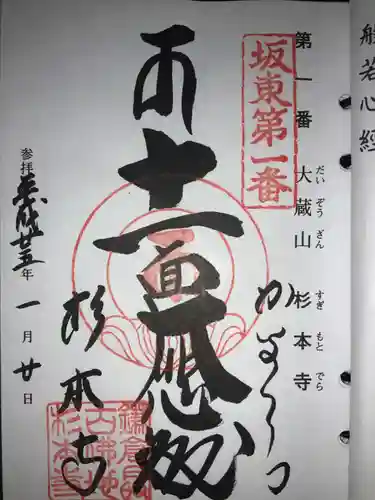 般若心經
第一番 大蔵山 杉本寺
だいぞうざん すぎもとでら
坂東第一番
かまくら
十一面
杉本寺
参拝 平成廿五年 一月廿日
杉本寺